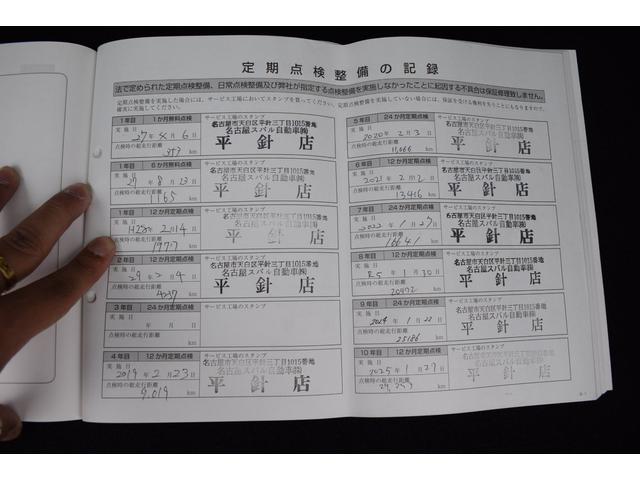 定期点検整備の記録
法で定められた定期点検整備、日常点検整備及び弊社が指定する点検整備を実施しなかったことに起因する不具合は保証修理致しません。
定期点検整備を実施した場合には、サービス工場においてスタンプを貰ってください。定期点検整備を実施していない場合には、保証を受ける権利を失うことにもなりますので、
確実に実施してください。
1年目 1か月無料点検 サービス工場のスタンプ
実施日 27年4月6日
点検時の総走行距離
km
名古屋市天白区平針三丁目1015番地
名古屋スバル自動車㈱
平針店
1年目 6か月無料点検 サービス工場のスタンプ
実施日 27年8月23日
点検時の総走行距離
1165 km
名古屋市天白区平針三丁目1015番地
名古屋スバル自動車㈱
平針店
1年目 12か月定期点検 サービス工場のスタンプ
実施日 H28年2月14日
点検時の総走行距離
1997 km
名古屋市天白区平針三丁目1015番地
名古屋スバル自動車㈱
平針店
2年目 12か月定期点検 サービス工場のスタンプ
実施日 29年2月4日
点検時の総走行距離
4237 km
名古屋市天白区平針三丁目1015番地
名古屋スバル自動車㈱
平針店
3年目 24か月定期点検 サービス工場のスタンプ
実施日 年月日
点検時の総走行距離
km
4年目 12か月定期点検 サービス工場のスタンプ
実施日 2019年2月23日
点検時の総走行距離
9,019 km
名古屋市天白区平針三丁目1015番地
名古屋スバル自動車㈱
平針店
5年目 24か月定期点検 サービス工場のスタンプ
実施日 2020年2月3日
点検時の総走行距離
11,666 km
名古屋市天白区平針三丁目1015番地
名古屋スバル自動車㈱
平針店
6年目 12か月定期点検 サービス工場のスタンプ
実施日 2021年2月2日
点検時の総走行距離
13416 km
名古屋市天白区平針三丁目1015番地
名古屋スバル自動車㈱
平針店
7年目 24か月定期点検 サービス工場のスタンプ
実施日 2022年1月27日
点検時の総走行距離
16641 km
名古屋市天白区平針三丁目1015番地
名古屋スバル自動車㈱
平針店
8年目 12か月定期点検 サービス工場のスタンプ
実施日 R5年1月30日
点検時の総走行距離
20492 km
名古屋市天白区平針三丁目1015番地
名古屋スバル自動車㈱
平針店
9年目 24か月定期点検 サービス工場のスタンプ
実施日 2024年1月22日
点検時の総走行距離
25186 km
名古屋市天白区平針三丁目1015番地
名古屋スバル自動車㈱
平針店
10年目 12か月定期点検 サービス工場のスタンプ
実施日 2025年1月27日
点検時の総走行距離
km
名古屋市天白区平針三丁目1015番地
名古屋スバル自動車㈱
平針店